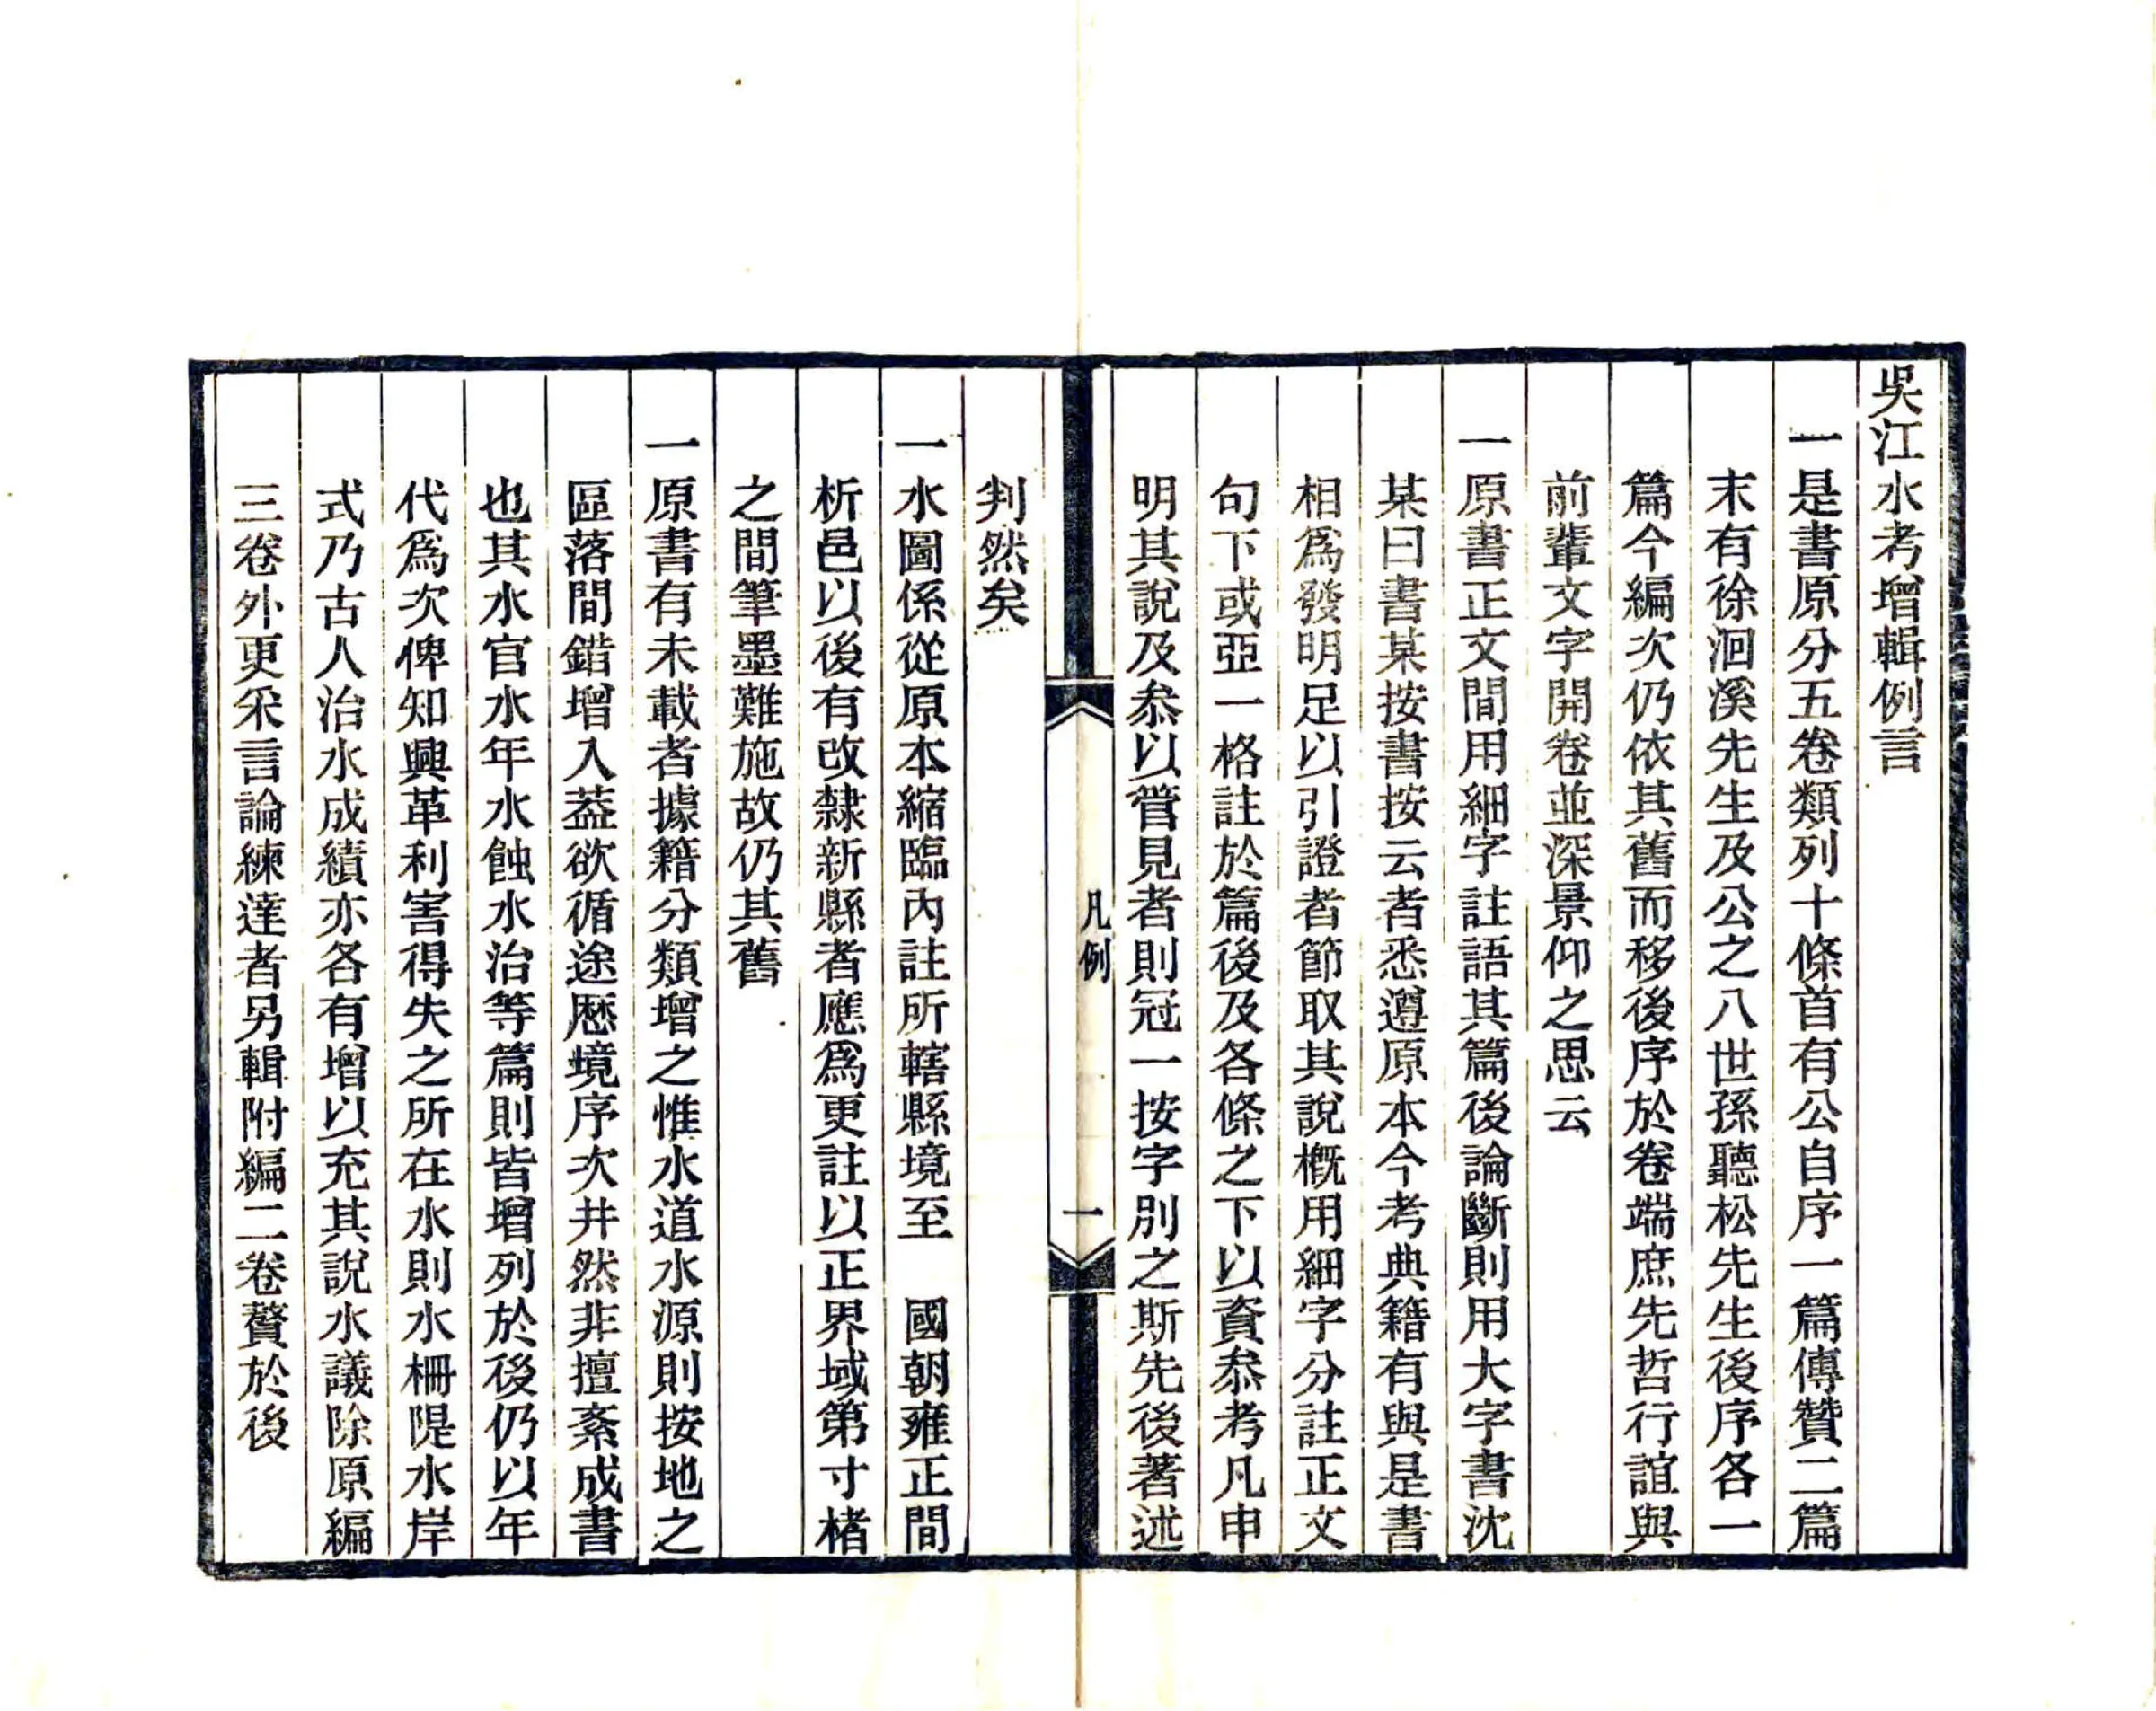 吳江水考增輯例言
一是書原分五卷類列十條首有公自序一篇傳贊二篇
末有徐洄溪先生及公之八世孫聽松先生後序各一
篇今編次仍依其舊而移後序於卷端庶先哲行誼與
前輩文字開卷並深景仰之思云
一原書正文間用細字註語其篇後論斷則用大字書沈
某曰書某按書按云者悉遵原本今考典籍有與是書
相爲發明足以引證者節取其說槪用細字分註正文
句下或亞一格註於篇後及各條之下以資叅考凡申
明其說及叅以管見者則冠一按字別之斯先後著述
凡例
一
判然矣
一水圖係從原本縮臨內註所轄縣境至　國朝雍正間
析邑以後有改隸新縣者應爲更註以正界域第寸楮
之間筆墨難施故仍其舊
一原書有未載者據籍分類增之惟水道水源則按地之
區落間錯增入葢欲循途歷境序次井然非擅紊成書
也其水官水年水蝕水治等篇則皆增列於後仍以年
代爲次俾知興革利害得失之所在水則水柵隄水岸
式乃古人治水成績亦各有增以充其說水議除原編
三卷外更采言論練達者另輯附編二卷贅於後